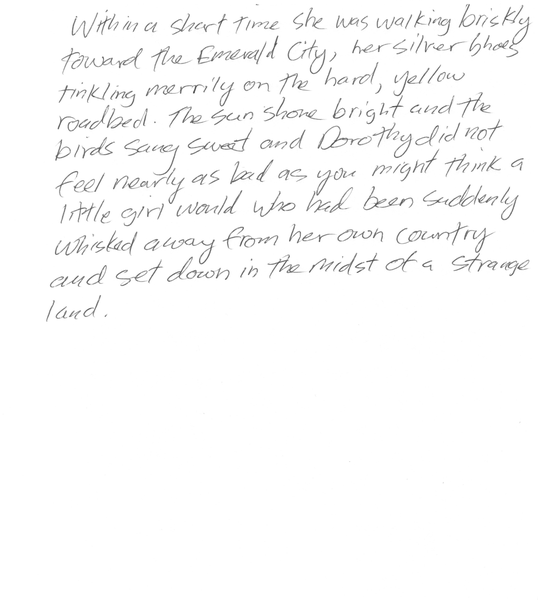 Within a short time she was walking briskly
toward the Emerald City, her silver shoes
tinkling merrily on the hard, yellow
roadbed. The sun shone bright and the
birds sang sweet and Dorothy did not
feel nearly as bad as you might think a
little girl would who had been suddenly
whisked away from her own country
and set down in the midst of a strange
land.